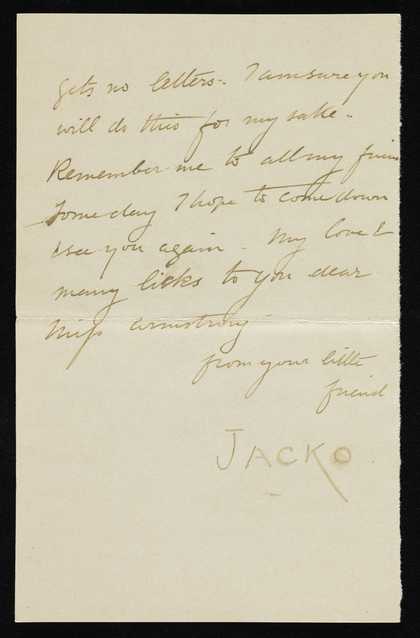 gets no letters. I am sure you
will do this for my sake.
Remember me to all my
Some day I hope to come down
& see you again. My love &
many licks to you dear
Miss Armstrong
from your little
friend
JACKO